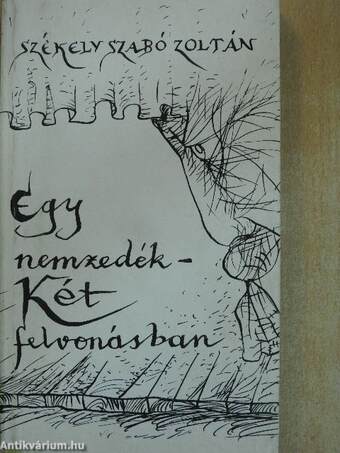 SZÉKELY SZABÓ ZOLTÁN
Egy
nemzedék –
Két
felvonásban
Antikvárium.hu